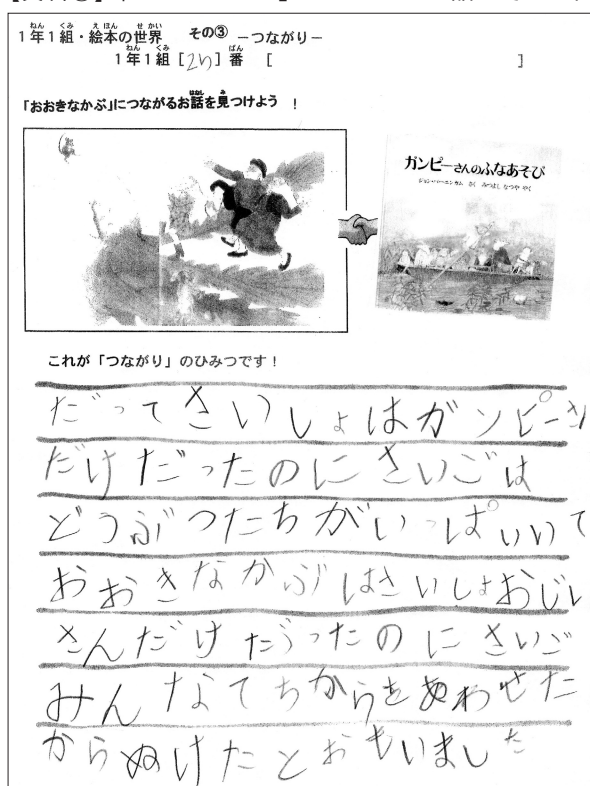 1年1組・絵本の世界 その③ －つながり－
1年1組［25］番 ［ ］
「おおきなかぶ」につながるお話を見つけよう ！
ガンピーさんのふなあそび
ジョン・バーニンガム さく みつよし なつや やく
これが「つながり」のひみつです！
だってさいしょはガンピーさ
だけだったのにさいごは
どうぶつたちがいっぱいいて
おおきなかぶはさいしょおじい
さんだけだったのにさいご
みんなてちからをあわせた
からぬけたとおもいました